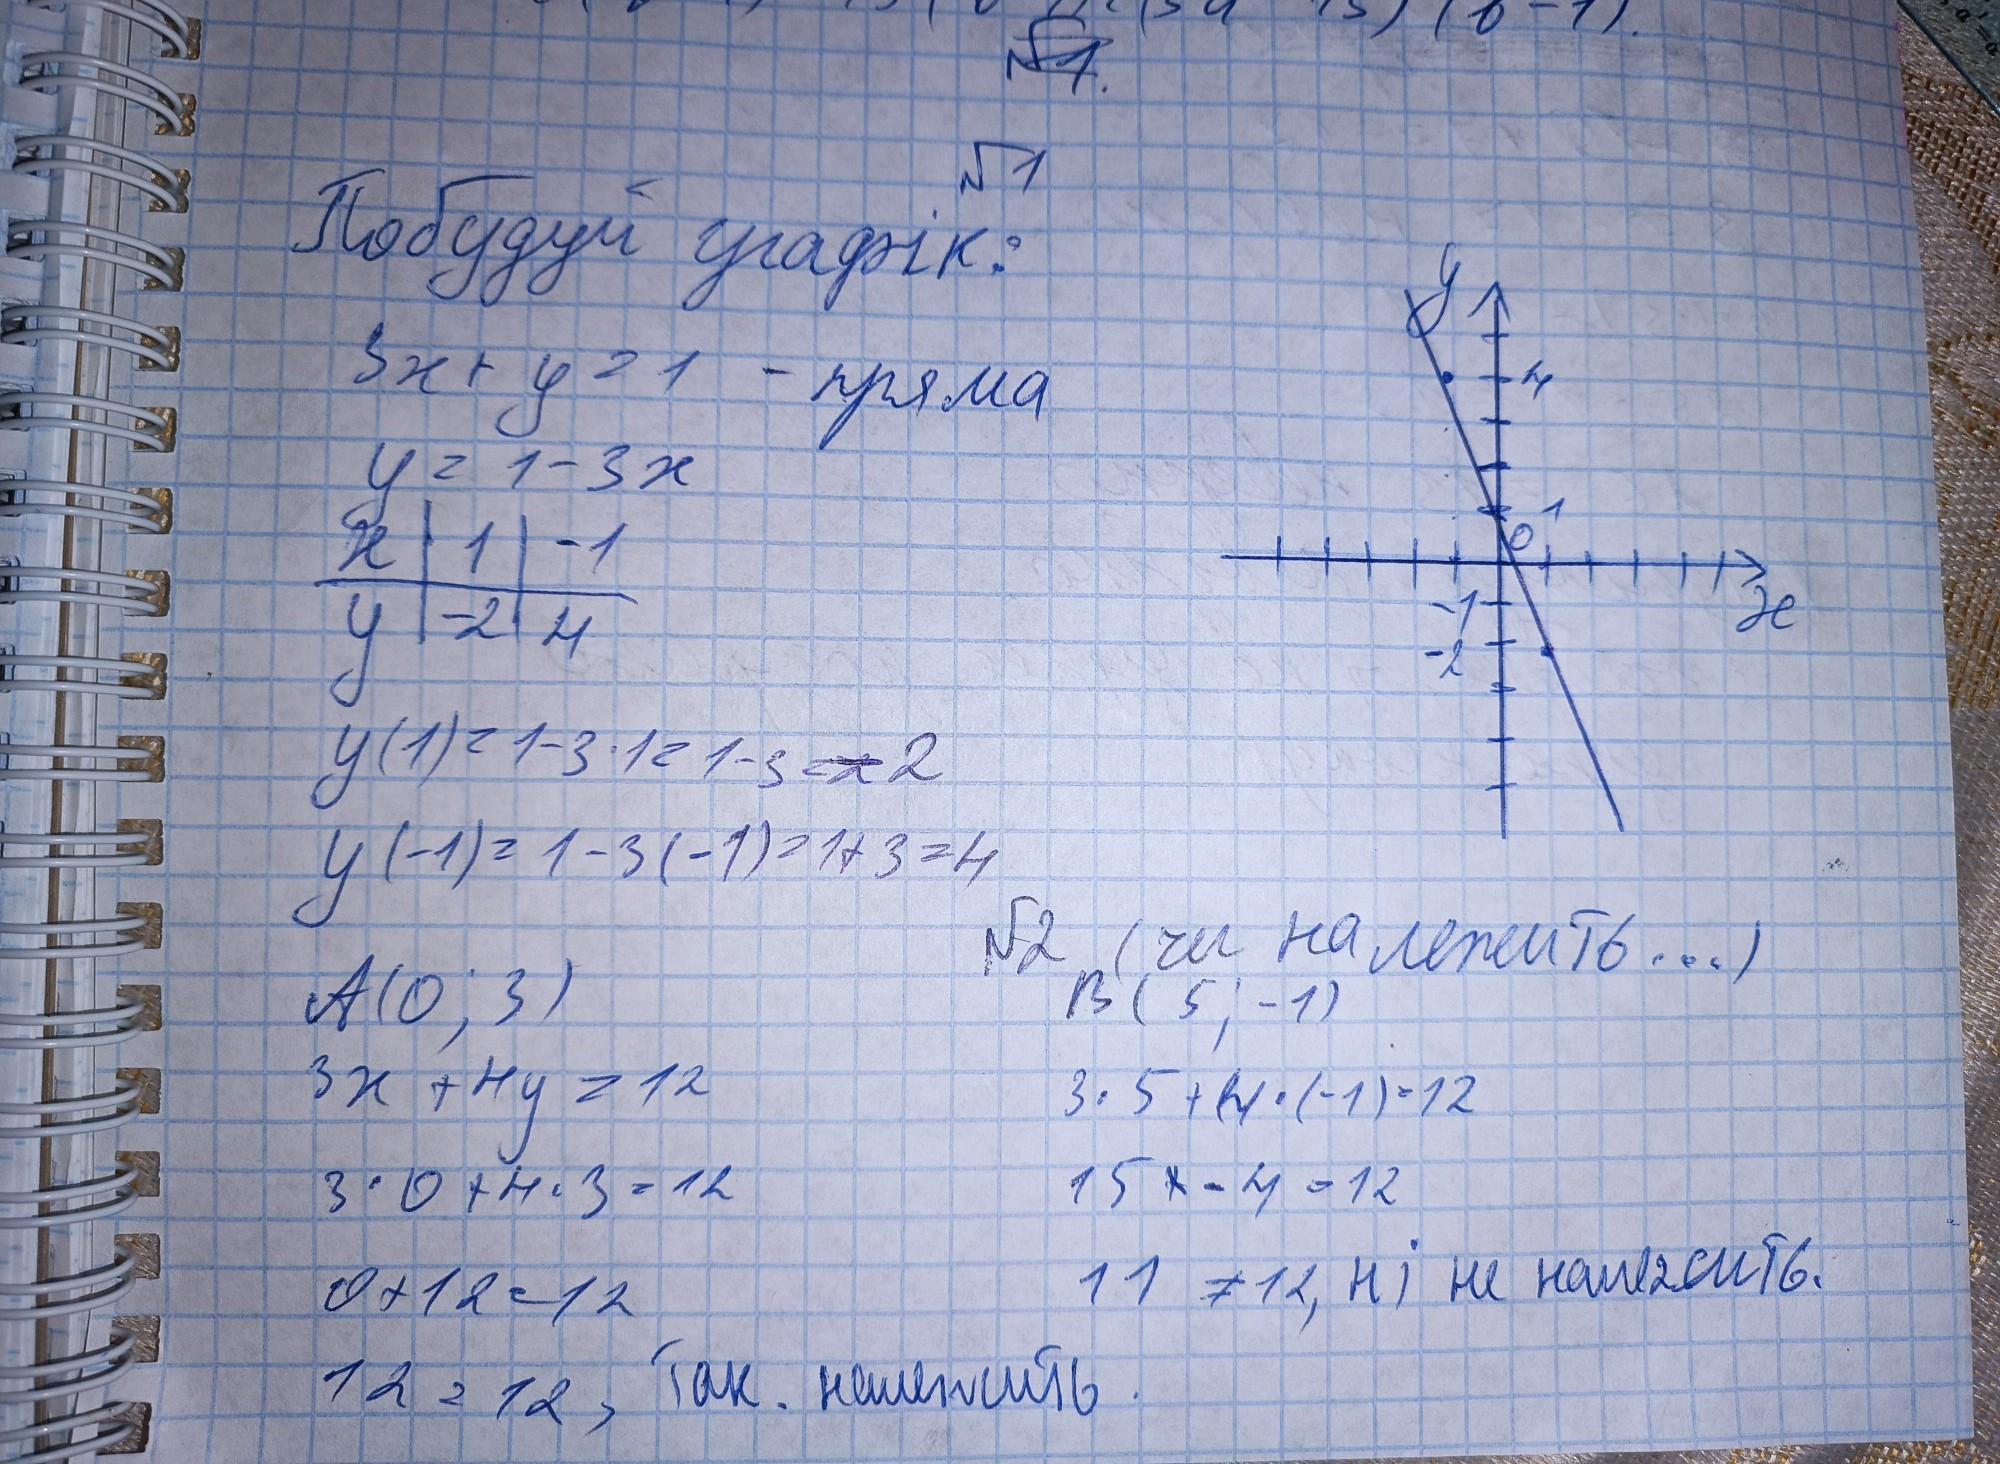 (b-1).
№1.
№1
Побудуй графік:
3x + y = 1 - пряма
y = 1 - 3x
x | 1 | -1
y | -2 | 4
y(1) = 1-3·1 = 1-3 = -2
y(-1) = 1-3(-1) = 1+3 = 4
y
4
1
0
-1
-2
x
№2 (чи належить....)
A(0; 3)
3x + 4y = 12
3·0+4·3=12
0+12=12
12=12, Так. належить.
B(5; -1)
3·5+4·(-1)=12
15 + -4 = 12
11 ≠12, ні не належить.